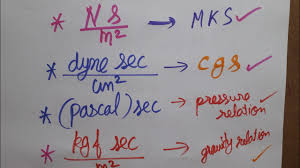 * N S / m² → MKS ✓
* dyne sec / cm² → cgs ✓
* (pascal) sec → pressure relation ✓
* kgf sec / m² → gravity relation ✓